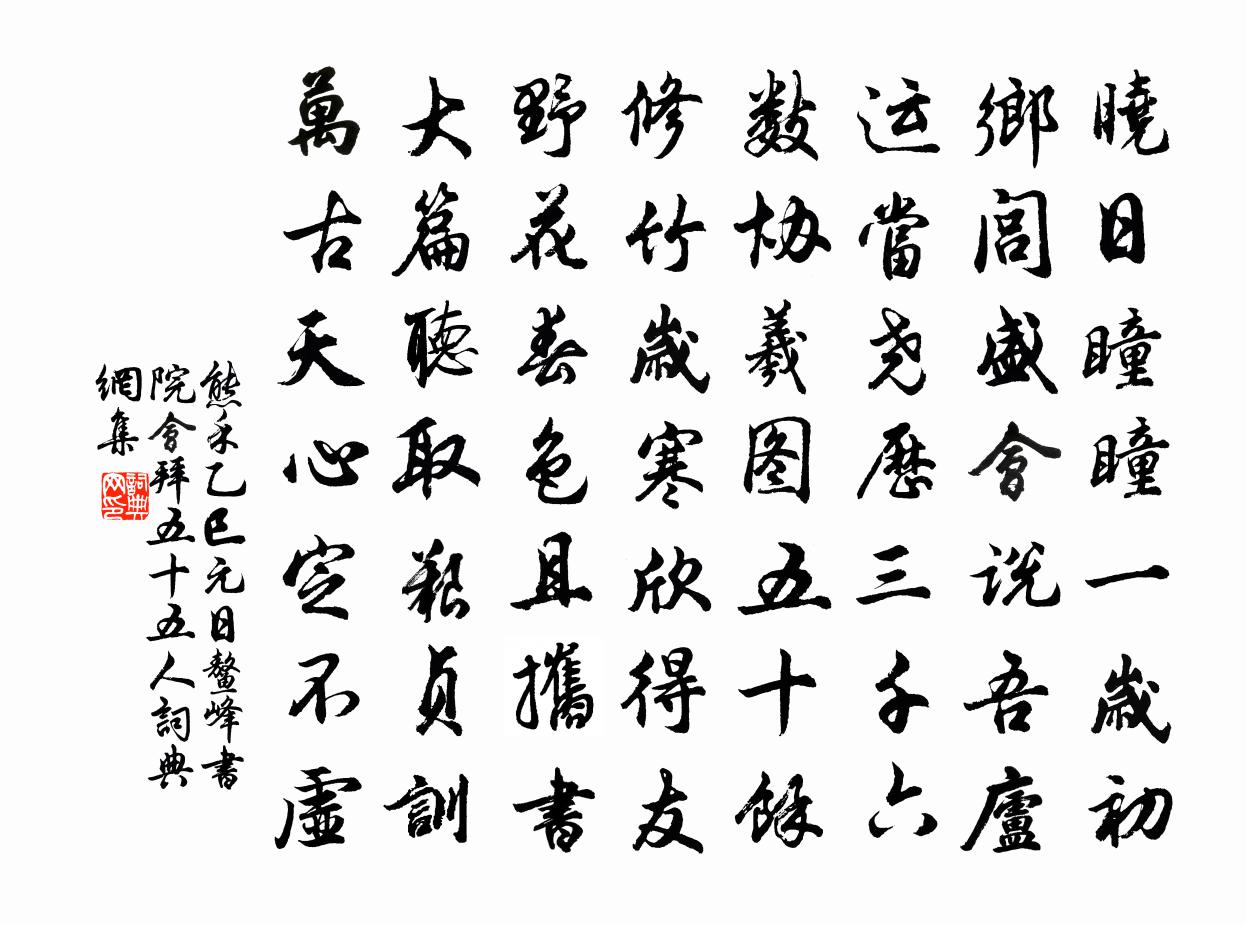 曉日瞳瞳一歲初
鄉閭盛會説吾廬
运當尧歷三千六
数协羲图五十餘
修竹歲寒欣得友
野花春色且攜書
大篇聽取艱貞訓
萬古天心定不虛
熊禾乙巳元日鰲峰書
院會拜五十五人詞典
網集
詞典网印